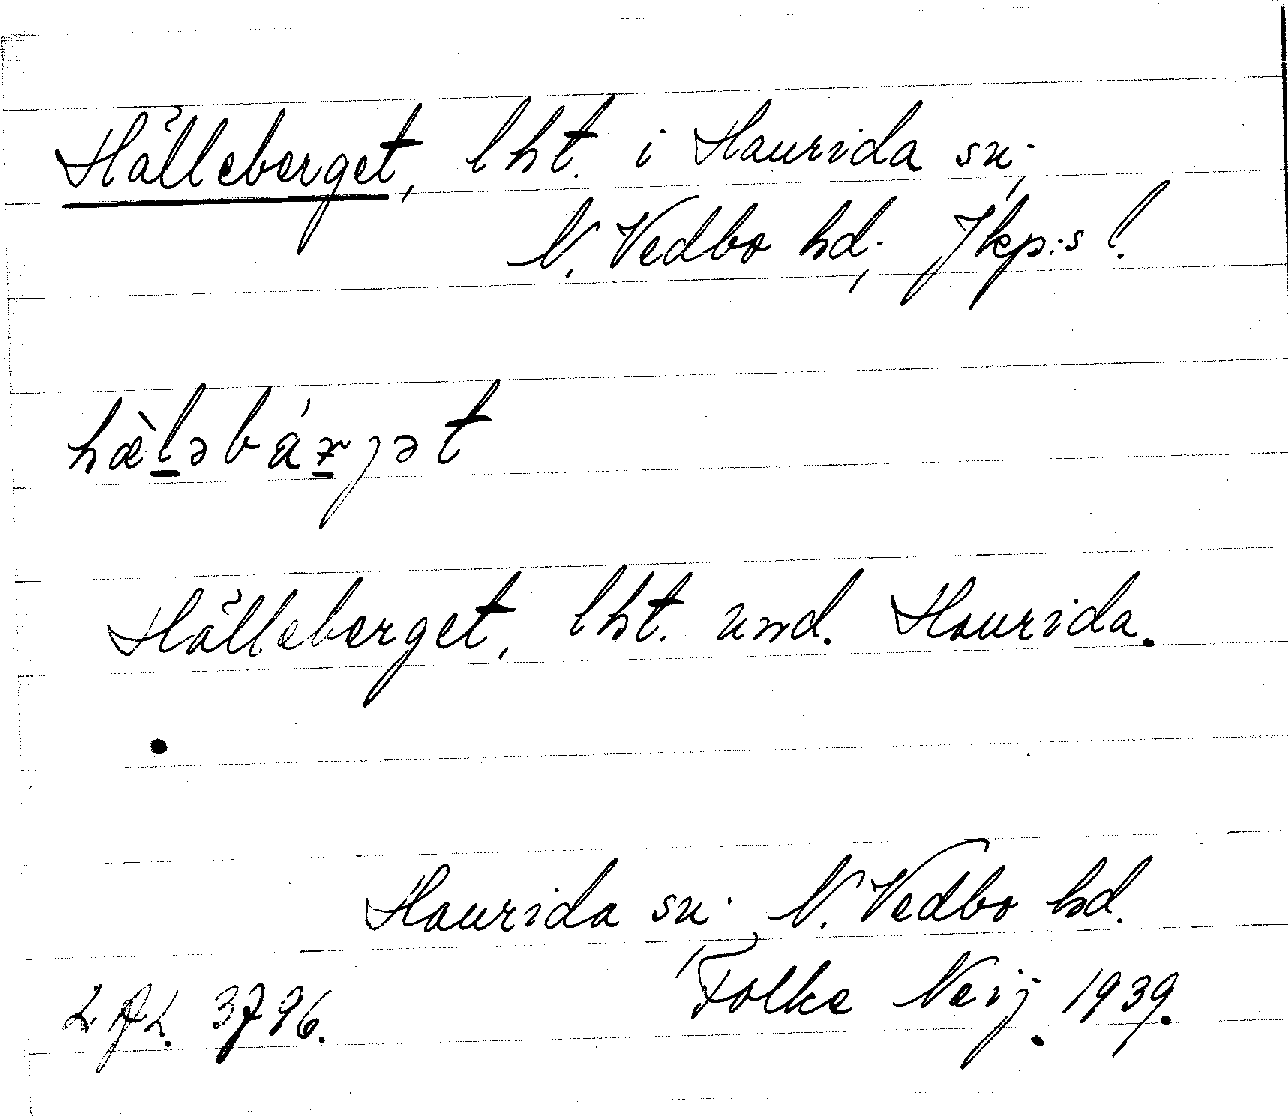 Hälleberget, lht. i Haurida sn;
N. Vedbo hd; Jkp:s l.
hæ̀l̠əbárjət
Hälleberget, lht. und. Haurida.
Haurida sn; N. Vedbo hd.
Folke Neij. 1939.
3796.